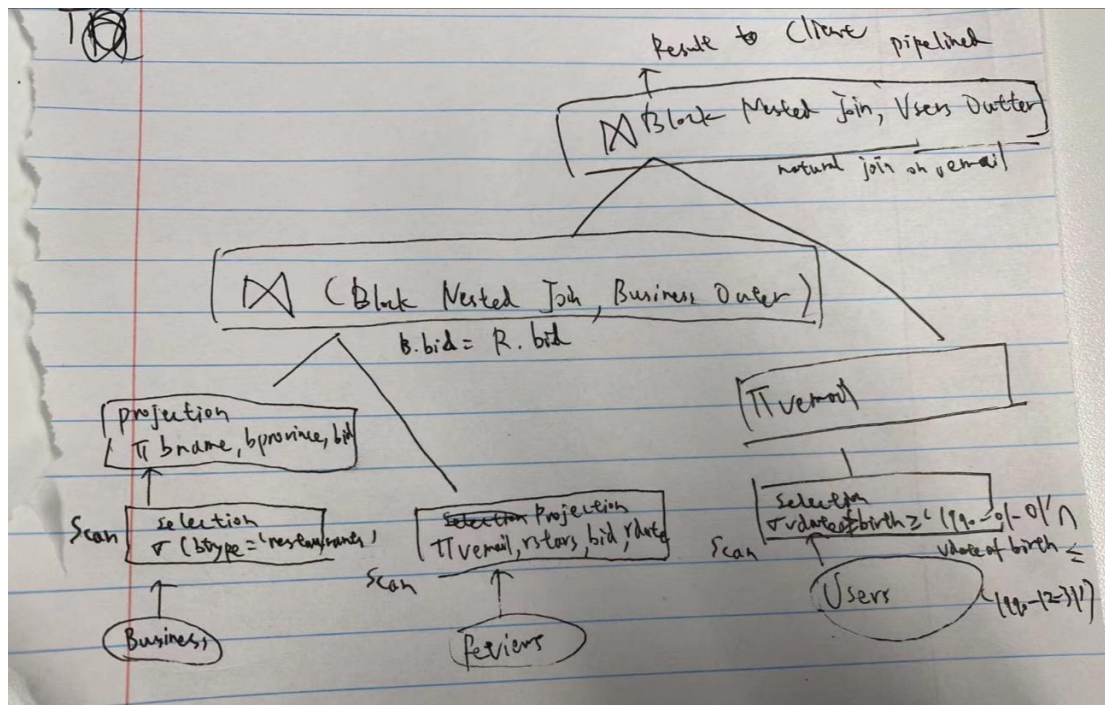 Result to Client pipelined
⋈ Block Nested Join, Users Outter
natural join on uemail
⋈ (Block Nested Join, Business Outer)
B.bid = R.bid
projection
π bname, bprovince, bid
π uemail
Scan
selection
σ (btype = 'restaurants'
selection projection
π uemail, rstars, bid, rdate
Scan
selection
σ udateofbirth ≥ '1990-01-01' ∩
udateofbirth ≤
'1990-12-31')
Scan
Business
Reviews
Users